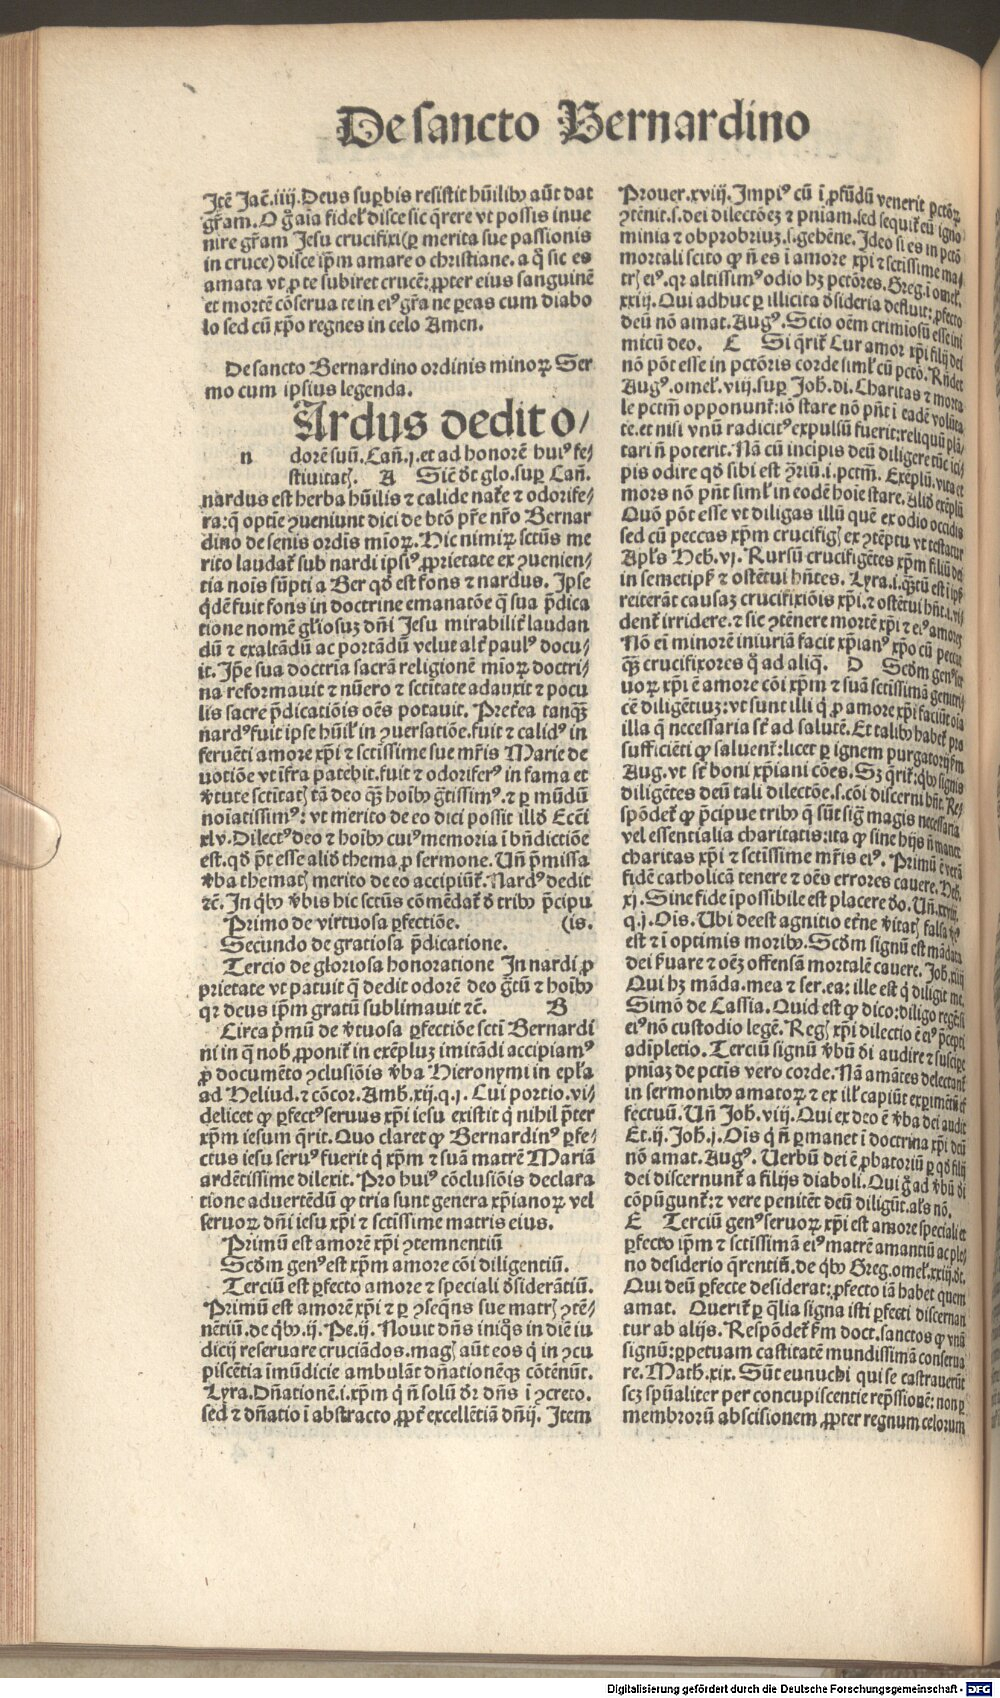 De sancto Bernardino
Itē Jac̄.iiij.Deus supbis resistit hūilibꝫ aūt dat
gr̄am. O gͣaia fidelꝭ disce sic q̄rere vt possis inue
nire gr̄am Jesu crucifixi(ꝑ merita sue passionis
in cruce)disce ip̄m amare o christiane. a q̄ sic es
amata vt ꝓ te subiret crucē:ꝓpter eius sanguinē
et mortē cōserua te in eiꝰ gr̄a ne ꝑeas cum diabo
lo sed cū xp̄o regnes in celo Amen.
De sancto Bernardino ordinis minoꝝ Ser
mo cum ipsius legenda.
Ardus dedit o/
n dorē suū.Cañ.j.et ad honorē huiꝰ fe/
stiuitatꝭ. A Sic̄ dr̄ glo.suꝑ Cañ.
nardus est herba hūilis ⁊ calide nat̄e ⁊ odorife/
ra:q̄ optie ꝯueniunt dici de btō pr̄e nr̄o Bernar
dino de senis ordīs mīoꝝ. Hic nimiꝝ sctūs me
rito laudat᷑ sub nardi ipsiꝰ ꝓprietate ex ꝯuenien/
tia nois sūpti a Ber qd̓ est fons ⁊ nardus. Ipse
q̇dē fuit fons in doctrine emanatōe q̄ sua p̄dica
tione nomē gl̓iosuꝫ dn̄i Jesu mirabilit᷑ laudan
dū ⁊ exaltādū ac portādū velut alt᷑ paulꝰ docu/
it. Ip̄e sua doctrīa sacrā religionē mīoꝝ doctri/
na reformauit ⁊ nūero ⁊ sctitate adauxit ⁊ pocu
lis sacre p̄dicatiōis oēs potauit. Pret᷑ea tanqꝫ̄
nardꝰ fuit ipse hūilꝭ in ꝯuersatiōe.fuit ⁊ calidꝰ in
feruēti amore xp̄i ⁊ sctissime sue mr̄is Marie de
uotiōe vt ifra patebit.fuit ⁊ odoriferꝰ in fama et
v̓tute sctitatꝭ tā deo qꝫ̄ hoībꝫ gr̄tissimꝰ.⁊ ꝑ mūdū
noiatissimꝰ: vt merito de eo dici possit illd̓ Ecci
xlv. Dilectꝰ deo ⁊ hoībꝫ cuiꝰ memoria i bn̄dictiōe
est.qd̓ p̄t esse aliḋ thema ꝓ sermone. Uñ p̄missa
v̓ba thematꝭ merito de eo accipiūt᷑. Nardꝰ dedit
⁊c̄. In qͥbꝫ v̓bis hic sctūs cōmēdat᷑ d̓ tribꝫ p̄cipu
Primo de virtuosa ꝑfectiōe. (is.
Secundo de gratiosa p̄dicatione.
Tercio de gloriosa honoratione In nardi ꝓ
prietate vt patuit q̄ dedit odorē deo gr̄tū ⁊ hoībꝫ
qꝛ deus ip̄m gratū sublimauit ⁊c̄. B
Circa p̓mū de v̓tuosa ꝑfectiōe sctī Bernardi
ni in q̄ nobꝭ ꝓponit᷑ in exēpluꝫ imitādi accipiamꝰ
ꝓ documēto ꝯclusiōis v̓ba Hieronymi in epl̓a
ad Heliud.⁊ cōcor.Amb.xij.q.j. Cui portio.vi/
delicet ꝙ ꝑfectꝰ seruus xp̄i iesu existit q̇ nihil p̄ter
xp̄m iesum q̄rit. Quo claret ꝙ Bernardinꝰ ꝑfe/
ctus iesu seruꝰ fuerit q̇ xp̄m ⁊ suā matrē Mariā
ardētissime dilexit. Pro huiꝰ cōclusiōis declara
tione aduertēdū ꝙ tria sunt genera xp̄ianoꝝ vel
seruoꝝ dn̄i iesu xp̄i ⁊ sctissime matris eius.
Primū est amorē xp̄i ꝯtemnentiū
Scd̓m genꝰ est xp̄m amore cōi diligentiū.
Terciū est ꝑfecto amore ⁊ speciali d̓siderātiū.
Primū est amorē xp̄i ⁊ ꝑ ꝯseq̄ns sue matrꝭ ꝯtē/
nētiū.de qͥbꝫ.ij. Pe.ij. Nouit dn̄s iniqͦs in diē iu
dicij reseruare cruciādos.magꝭ aūt eos q̇ in ꝯcu
piscētia īmūdicie ambulāt dn̄ationēqꝫ cōtēnūt.
Lyra.Dn̄ationē.i.xp̄m q̇ n̄ solū dr̄ dn̄s i ꝯcreto.
sed ⁊ dn̄atio i abstracto ꝓpt᷑ excellētiā dn̄ij. Item
Prouer.xviij. Impiꝰ cū i ꝓfūdū venerit pctōꝝ
ꝯtēnit.s.dei dilectōeꝫ ⁊ pniam.sed sequit᷑ eū igno
minia ⁊ obprobriuꝫ.s.gehēne. Ideo si es in pctō
mortali scito ꝙ n̄ es i amore xp̄i ⁊ sctissime ma/
trꝭ eiꝰ.qꝛ altissimꝰ odio hꝫ pctōres. Greg.i omel.
xxij. Qui adhuc ꝑ illicita d̓sideria defluit:ꝓfecto
deū nō amat.Augꝰ.Scio oēm crimiosū esse ini
micū deo. C Si q̄rit᷑ Cur amor xp̄i filij dei
nō pōt esse in pctōris corde simlꝭ cū pctō. Rn̄det
Augꝰ.omel.viij.suꝑ Joh.di.Charitas ⁊ morta
le pctm̄ opponunt᷑:iō stare nō pn̄t i eadē volūta
te.et nisi vnū radicitꝰ expulsū fuerit:reliquū plā/
tari n̄ poterit. Nā cū incipis deū diligere tūc ici/
pis odire qd̓ sibi est ꝯriū.i.pctm̄. Exēplū.vita et
mors nō pn̄t simlꝭ in eodē hoie stare. Aliḋ exēplū
Quō pōt esse vt diligas illū quē ex odio occidis
sed cū peccas xp̄m crucifigꝭ ex ꝯtēptu vt testatur
Apl̓s Heb.vj. Rursū crucifigētes xp̄m filiū dei
in semetipꝭ ⁊ ostētui hn̄tes. Lyra.i.qꝫ̄tū est i ipꝭ
reiterāt causaꝫ crucifixiōis xp̄i.⁊ ostētui hn̄t.i.vi/
dent᷑ irridere.⁊ sic ꝯtēnere mortē xp̄i ⁊ eiꝰ amoreꝫ
Nō ei minorē iniuriā facit xp̄ianꝰ xp̄o cū peccat
qꝫ̄ crucifixores q̇ ad aliq̄. D Scd̓m genꝰ ser
uoꝝ xp̄i ē amore cōi xp̄m ⁊ suā sctissimā genitri/
cē diligētiuꝫ:vt sunt illi q̇ ꝓ amore xp̄i faciūt oīa
illa q̄ necessaria st̄ ad salutē. Et talibꝫ habet᷑ pro
sufficiēti ꝙ saluent᷑:licet ꝑ ignem purgatorij s̄m
Aug.vt st̄ boni xp̄iani cōes. Sꝫ q̄rit᷑:qͥbꝫ signis
diligētes deū tali dilectōe.s.cōi discerni hn̄t. Re/
spōdet᷑ ꝙ p̄cipue tribꝫ q̄ sūt sigꝭ magis necessaria
vel essentialia charitatis:ita ꝙ sine hijs n̄ manet
charitas xp̄i ⁊ sctissime mr̄is eiꝰ. Primū ē verā
fidē catholicā tenere ⁊ oēs errores cauere. Heb.
xj. Sine fide ipossibile est placere deo. Uñ.xxiiij.
q.j. Ois. Ubi deest agnitio et᷑ne v̓itatꝭ falsa v̓tꝰ
est ⁊ i optimis moribꝫ. Scd̓m signū est mādata
dei s̓uare ⁊ oēꝫ offensā mortalē cauere. Joh.xiiij
Qui hꝫ māda.mea ⁊ ser.ea: ille est q̇ diligit me.
Simō de Cassia. Quid est ꝙ dico:diligo regē:si
eiꝰ nō custodio legē. Regꝭ xp̄i dilectio ē eiꝰ p̄cepti
adīpletio. Terciū signū v̓bū di audire ⁊ suscipe
pniaꝫ de pctis vero corde. Nā amātes delectant᷑
in sermonibꝫ amatoꝝ ⁊ ex illꝭ capiūt expimētū ef
fectuū. Uñ Joh.viij. Qui ex deo ē v̓ba dei audit
Et.ij. Joh.j. Ois q̇ n̄ ꝑmanet i doctrina xp̄i deū
nō amat. Augꝰ. Uerbū dei ē ꝓbatoriū ꝑ qd̓ filij
dei discernunt᷑ a filijs diaboli. Qui g̓ ad v̓bū di
cōpūgunt᷑:⁊ vere penitēt deū diligūt.al̓s nō.
E Terciū genꝰ seruoꝝ xp̄i est amore speciali et
ꝑfecto ip̄m ⁊ sctissimā eiꝰ matrē amantiū ac ple/
no desiderio q̄rentiū.de qͥbꝫ Greg.omel.xxiij.dt.
Qui deū ꝑfecte desiderat:ꝓfecto iā habet quem
amat. Querit᷑ ꝑ q̄lia signa isti ꝑfecti discernan
tur ab alijs. Respōdet᷑ s̄m doct.sanctos ꝙ vnū
signū:ꝑpetuam castitatē mundissimā conserua
re. Math.xix. Sūt eunuchi qui se castrauerūt
scꝫ spūaliter per concupiscentie rep̄ssionē: non ꝑ
membrorū abscisionem ꝓpter regnum celorum
Digitalisierung gefördert durch die Deutsche Forschungsgemeinschaft - DFG